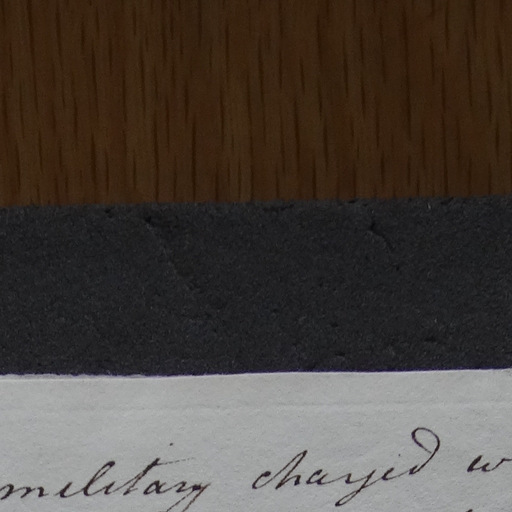 military charged w